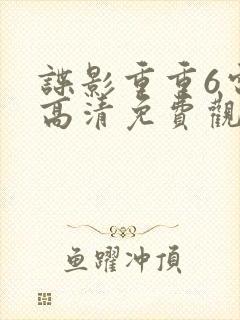 諜影重重6
高清免費觀
鱼躍冲頂